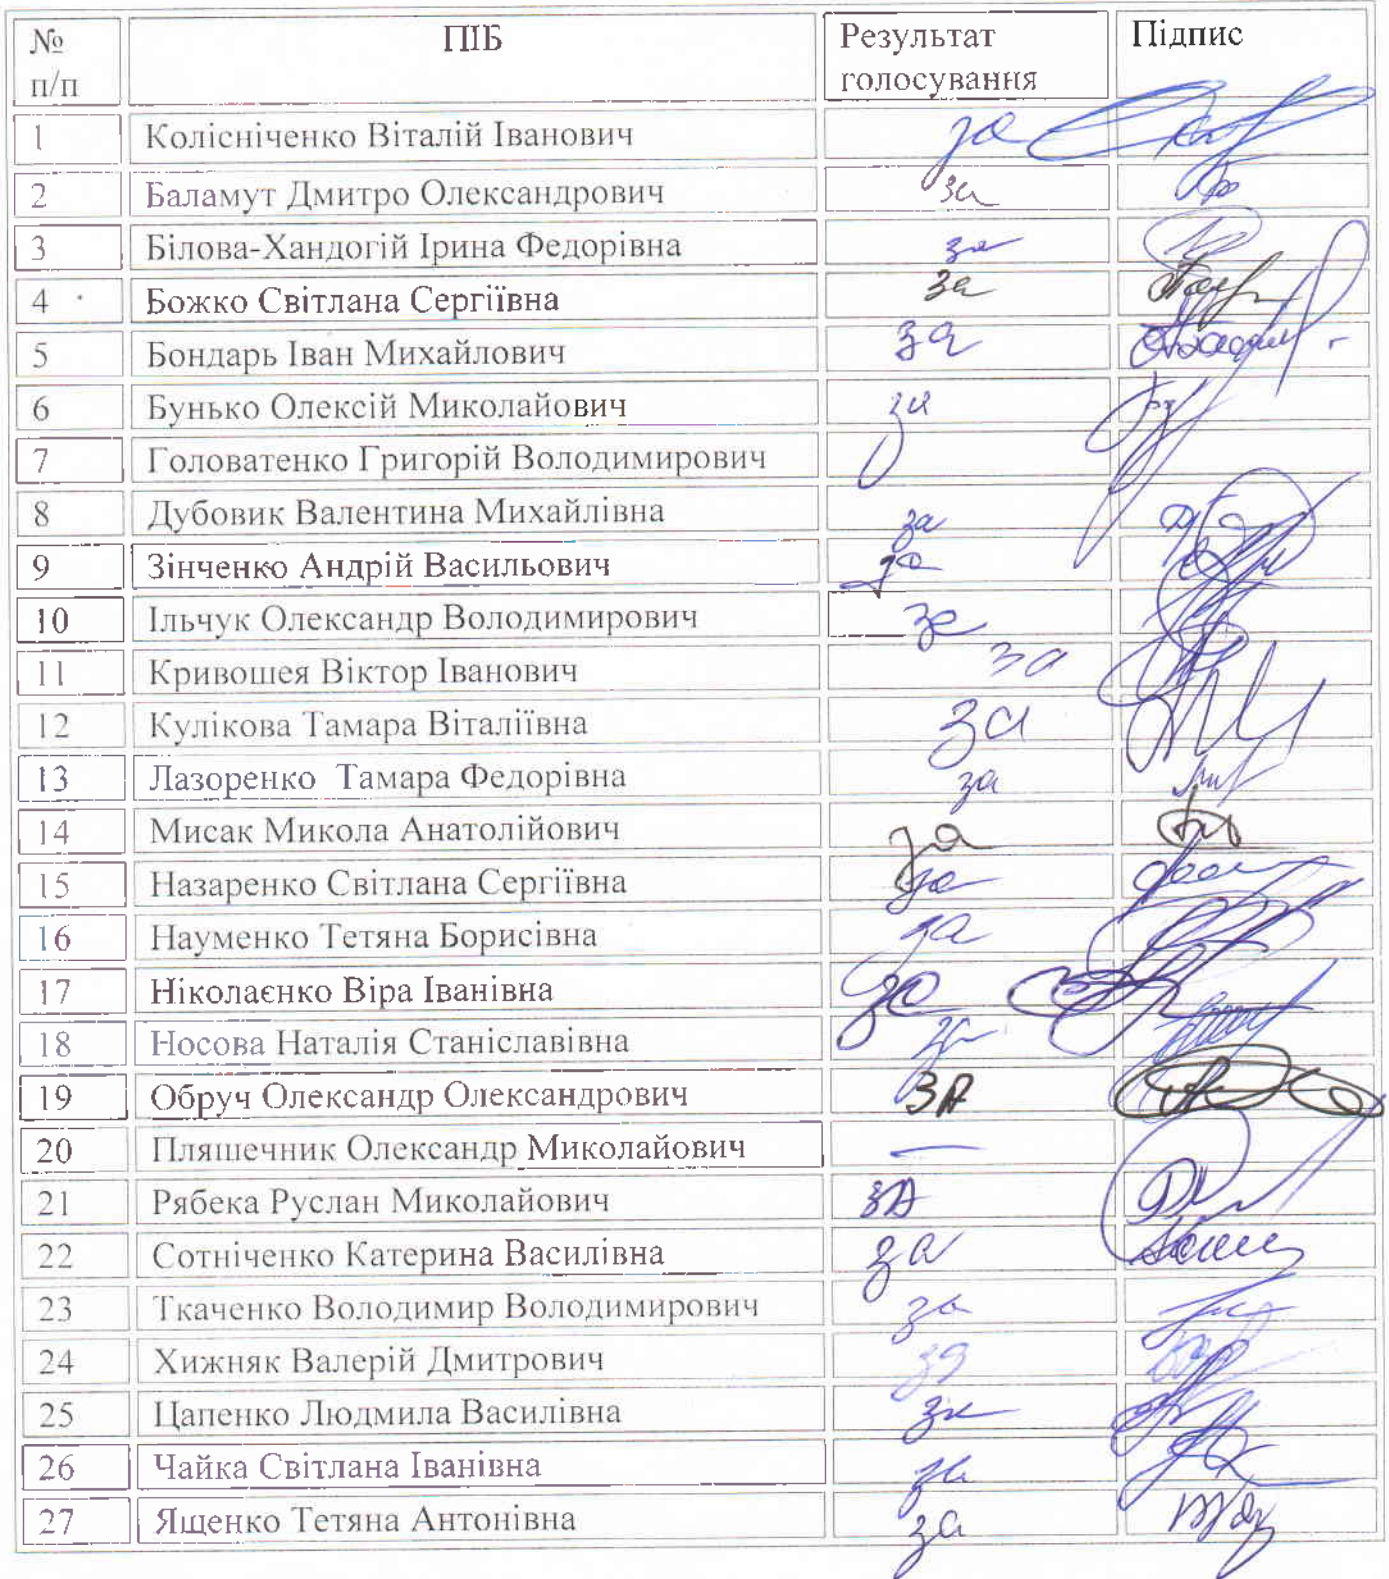 № п/п ПІБ Результат голосування Підпис
1 Колісніченко Віталій Іванович за
2 Баламут Дмитро Олександрович за
3 Білова-Хандогій Ірина Федорівна за
4 Божко Світлана Сергіївна за
5 Бондарь Іван Михайлович за
6 Бунько Олексій Миколайович за
7 Головатенко Григорій Володимирович
8 Дубовик Валентина Михайлівна за
9 Зінченко Андрій Васильович за
10 Ільчук Олександр Володимирович за
11 Кривошея Віктор Іванович за
12 Кулікова Тамара Віталіївна за
13 Лазоренко Тамара Федорівна за
14 Мисак Микола Анатолійович за
15 Назаренко Світлана Сергіївна за
16 Науменко Тетяна Борисівна за
17 Ніколаєнко Віра Іванівна за
18 Носова Наталія Станіславівна за
19 Обруч Олександр Олександрович ЗА
20 Пляшечник Олександр Миколайович —
21 Рябека Руслан Миколайович ЗА
22 Сотніченко Катерина Василівна за
23 Ткаченко Володимир Володимирович за
24 Хижняк Валерій Дмитрович за
25 Цапенко Людмила Василівна за
26 Чайка Світлана Іванівна за
27 Ященко Тетяна Антонівна за